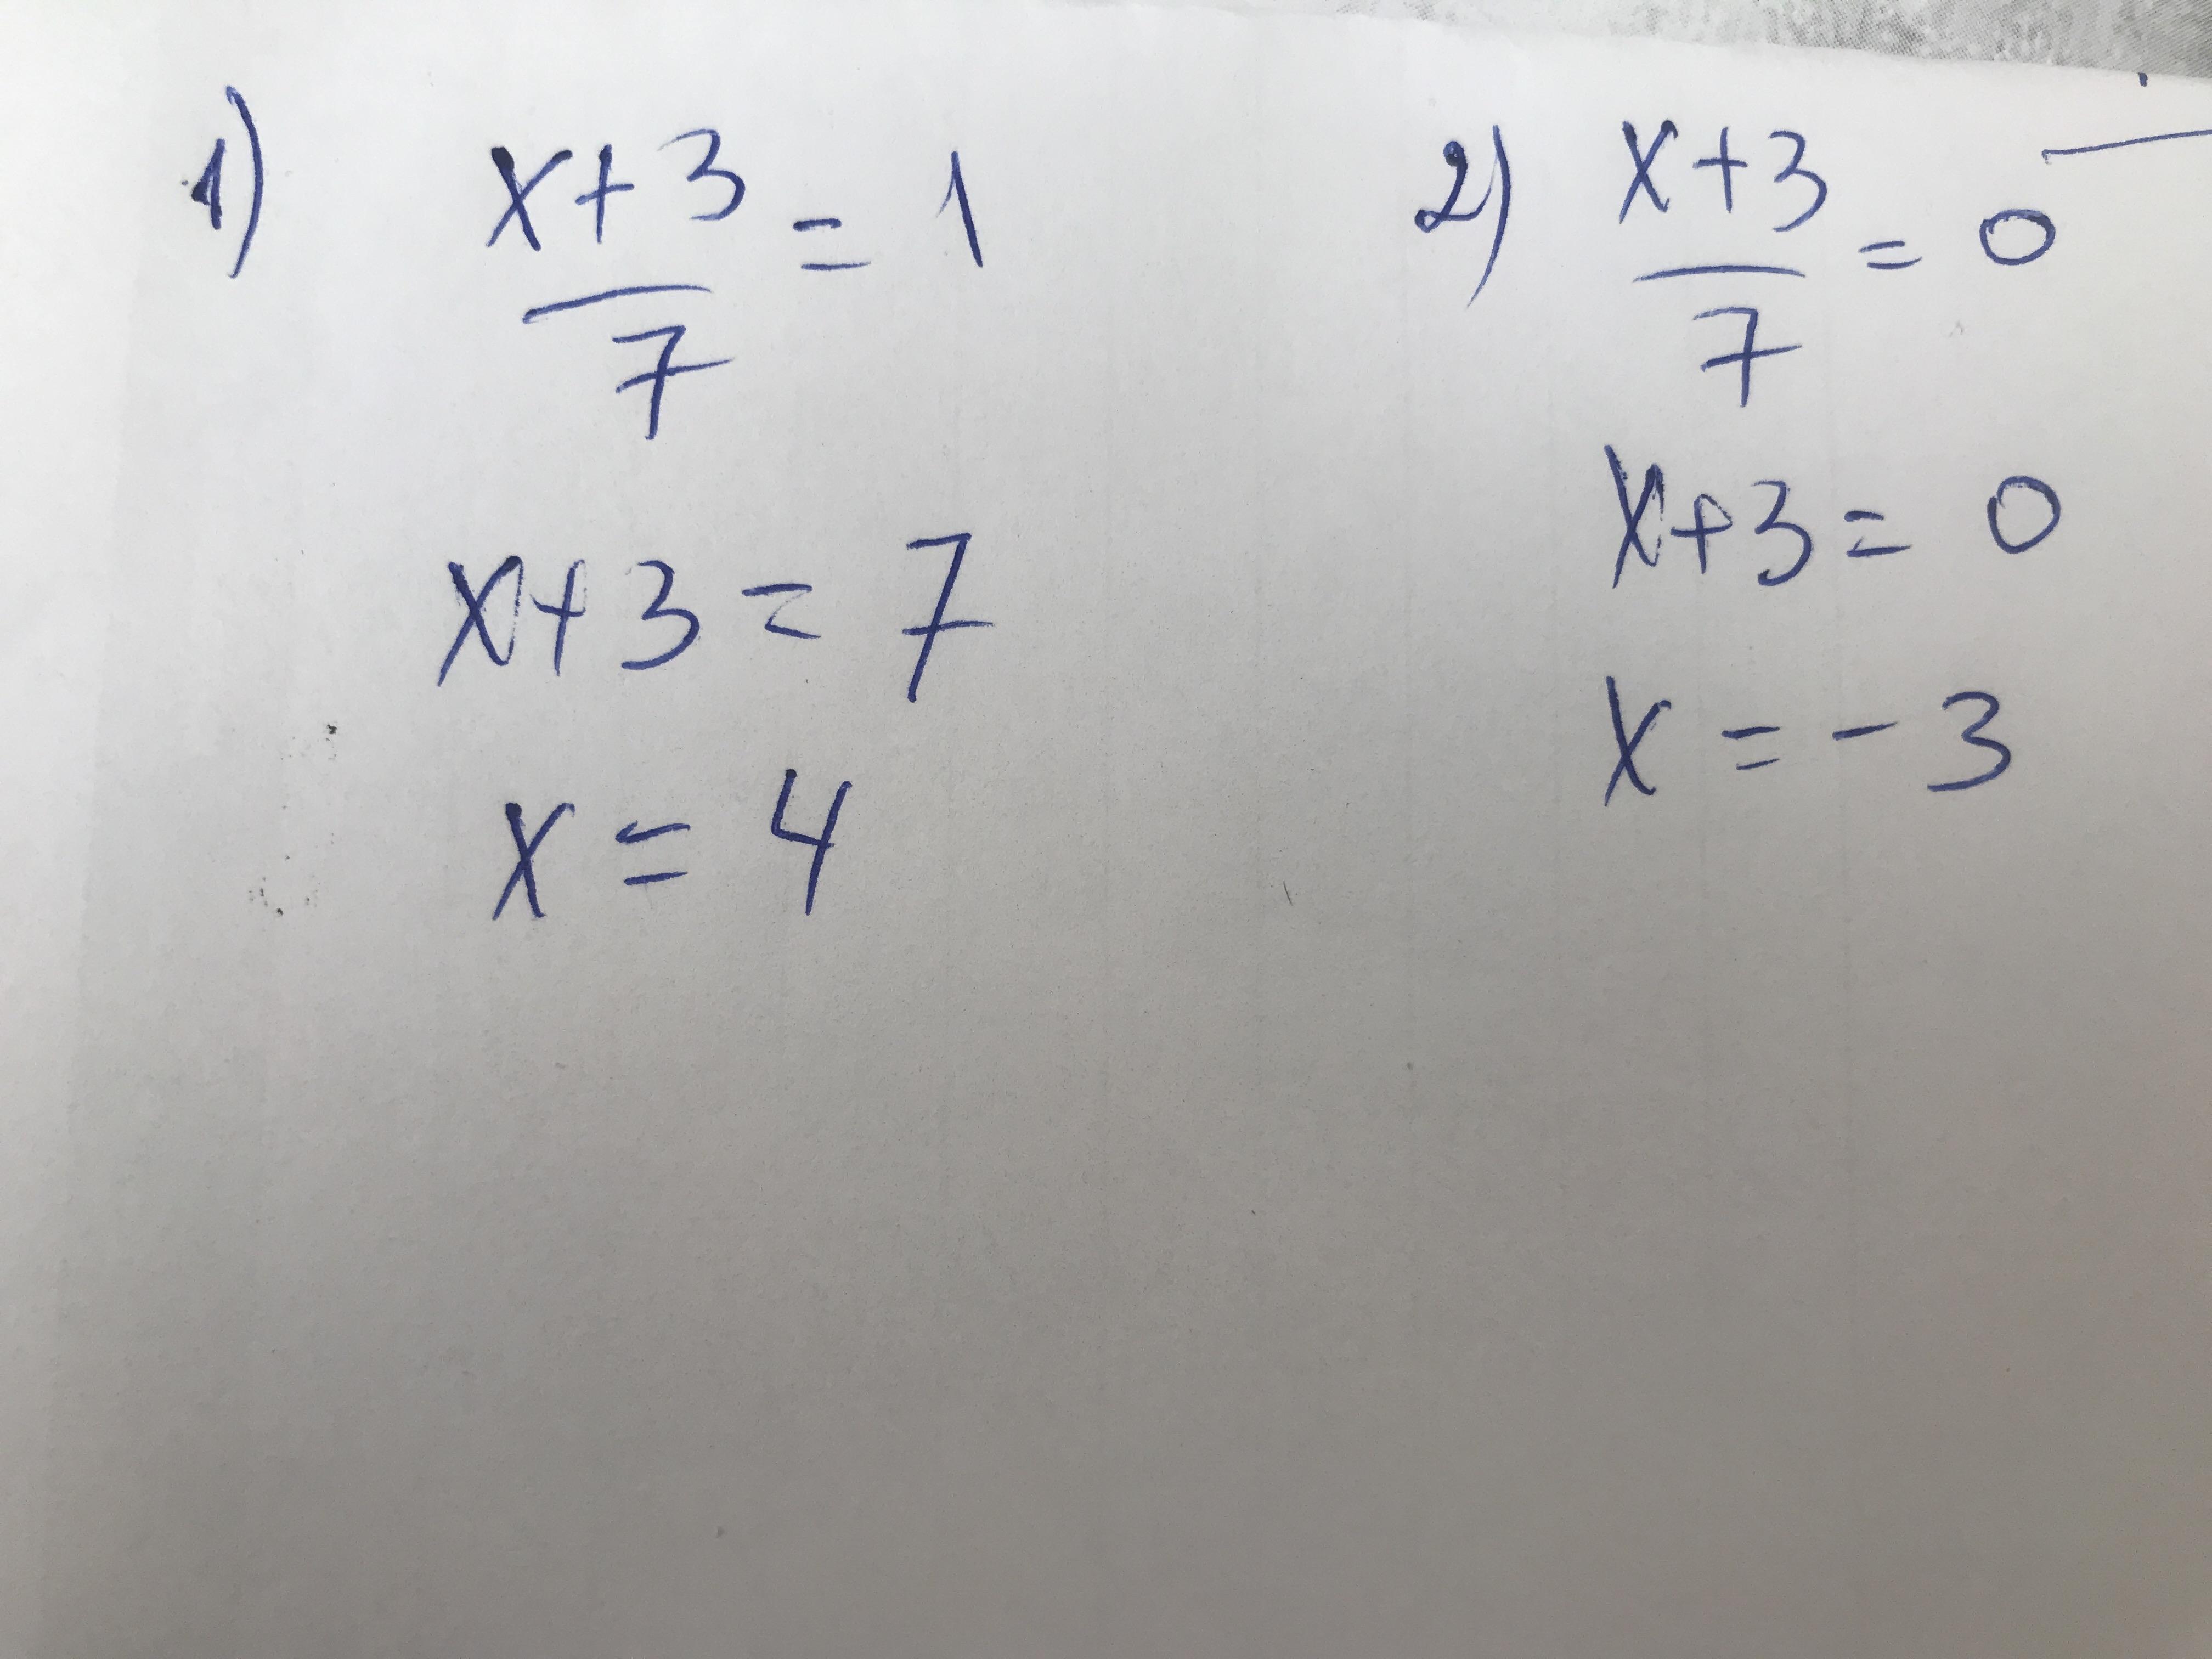 1) x+3/7 = 1
x+3 = 7
x = 4
2) x+3/7 = 0
x+3 = 0
x = -3